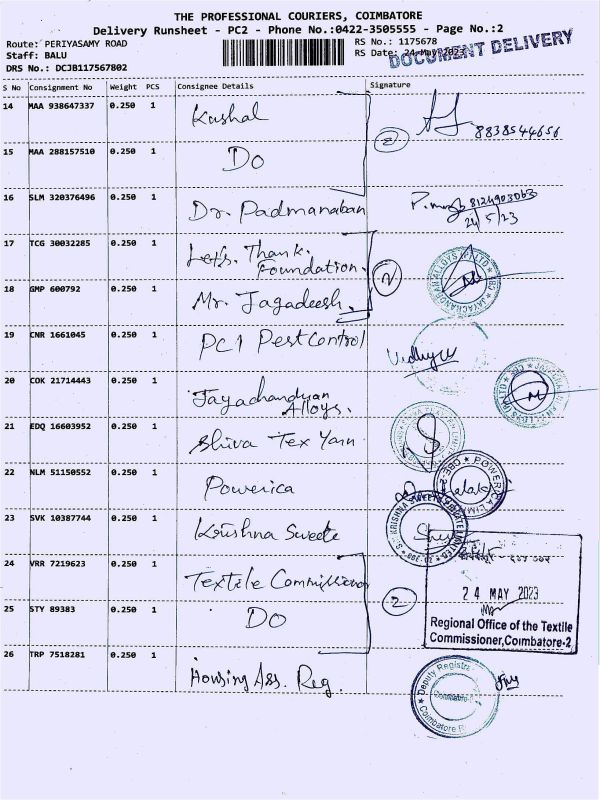 THE PROFESSIONAL COURIERS, COIMBATORE
Delivery Runsheet - PC2 - Phone No.:0422-3505555 - Page No.:2
Route: PERIYASAMY ROAD
Staff: BALU
DRS No.: DCJB117567802
RS No.: 1175678
RS Date: 24-May-2023
DOCUMENT DELIVERY
S No Consignment No Weight PCS Consignee Details Signature
14 MAA 938647337 0.250 1 Kushal 8838544656
15 MAA 288157510 0.250 1 Do
2
16 SLM 320376496 0.250 1 Dr. Padmanaban 8124903063
24/5/23
17 TCG 30032285 0.250 1 Let's. Thank.
Foundation.
2
18 GMP 600792 0.250 1 Mr. Jagadeesh.
19 CNR 1661045 0.250 1 PC1 Pest Control
20 COK 21714443 0.250 1 Jayachandran
Alloys.
21 EDQ 16603952 0.250 1 Shiva Tex Yarn
22 NLM 51150552 0.250 1 Powerica
POWERICA
23 SVK 10387744 0.250 1 Krishna Sweets
24 VRR 7219623 0.250 1 Textile Commissioner
25 STY 89383 0.250 1 Do
2
24 MAY 2023
Regional Office of the Textile
Commissioner, Coimbatore-2
26 TRP 7518281 0.250 1 Housing Ass. Reg.
Deputy Registra
Coimbatore